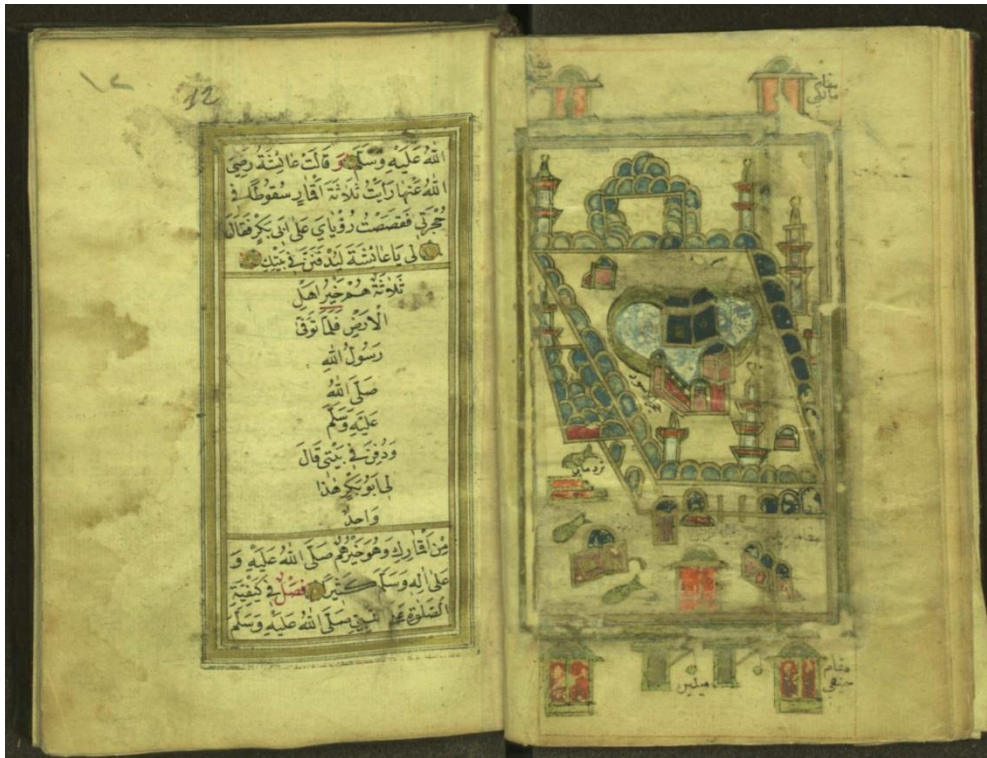 12
اللّٰهُ عَلَيْهِ وَسَلَّمَ وَ قَالَتْ عَائِشَةُ رَضِيَ
اللّٰهُ عَنْهَا رَاَيْتُ ثَلَاثَةَ اَقْمَارٍ سُقُوطًا فِي
حُجْرَتِي فَقَصَصْتُ رُؤْيَايَ عَلَى اَبِي بَكْرٍ فَقَالَ
لِي يَا عَائِشَةُ لَيُدْفَنَنَّ فِي بَيْتِكِ
ثَلَاثَةٌ هُمْ خَيْرُ اَهْلِ
الْاَرْضِ فَلَمَّا تُوُفِّيَ
رَسُولُ اللّٰهِ
صَلَّى اللّٰهُ
عَلَيْهِ وَسَلَّمَ
وَدُفِنَ فِي بَيْتِي قَالَ
لِي اَبُو بَكْرٍ هٰذَا
وَاحِدٌ
مِنْ اَقْمَارِكِ وَهُوَ خَيْرُهُمْ صَلَّى اللّٰهُ عَلَيْهِ وَ
عَلٰى اٰلِهِ وَسَلَّمَ كَثِيرًا فَصْلٌ فِي كَيْفِيَّةِ
الصَّلٰوةِ عَلَى النَّبِيِّ صَلَّى اللّٰهُ عَلَيْهِ وَسَلَّمَ
مقام
مالكي
مقام
حنفي
ميلين